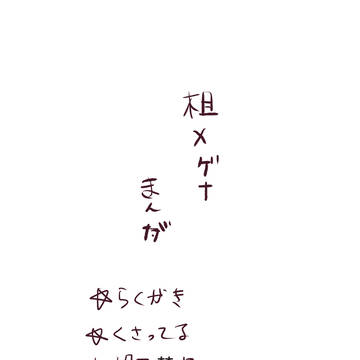 柤メゲナ
まんが
☆らくがき
☆くさってる